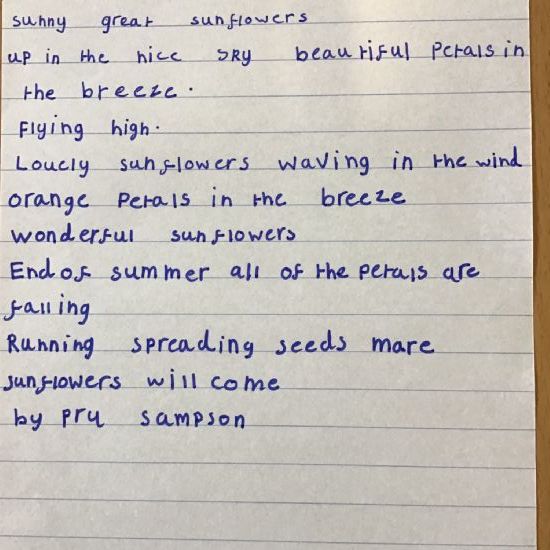 sunny great sunflowers
up in the nice sky beautiful petals in
the breeze.
Flying high.
Lovely sunflowers waving in the wind
orange petals in the breeze
wonderful sunflowers
End of summer all of the petals are
falling
Running spreading seeds mare
sunflowers will come
by pru sampson